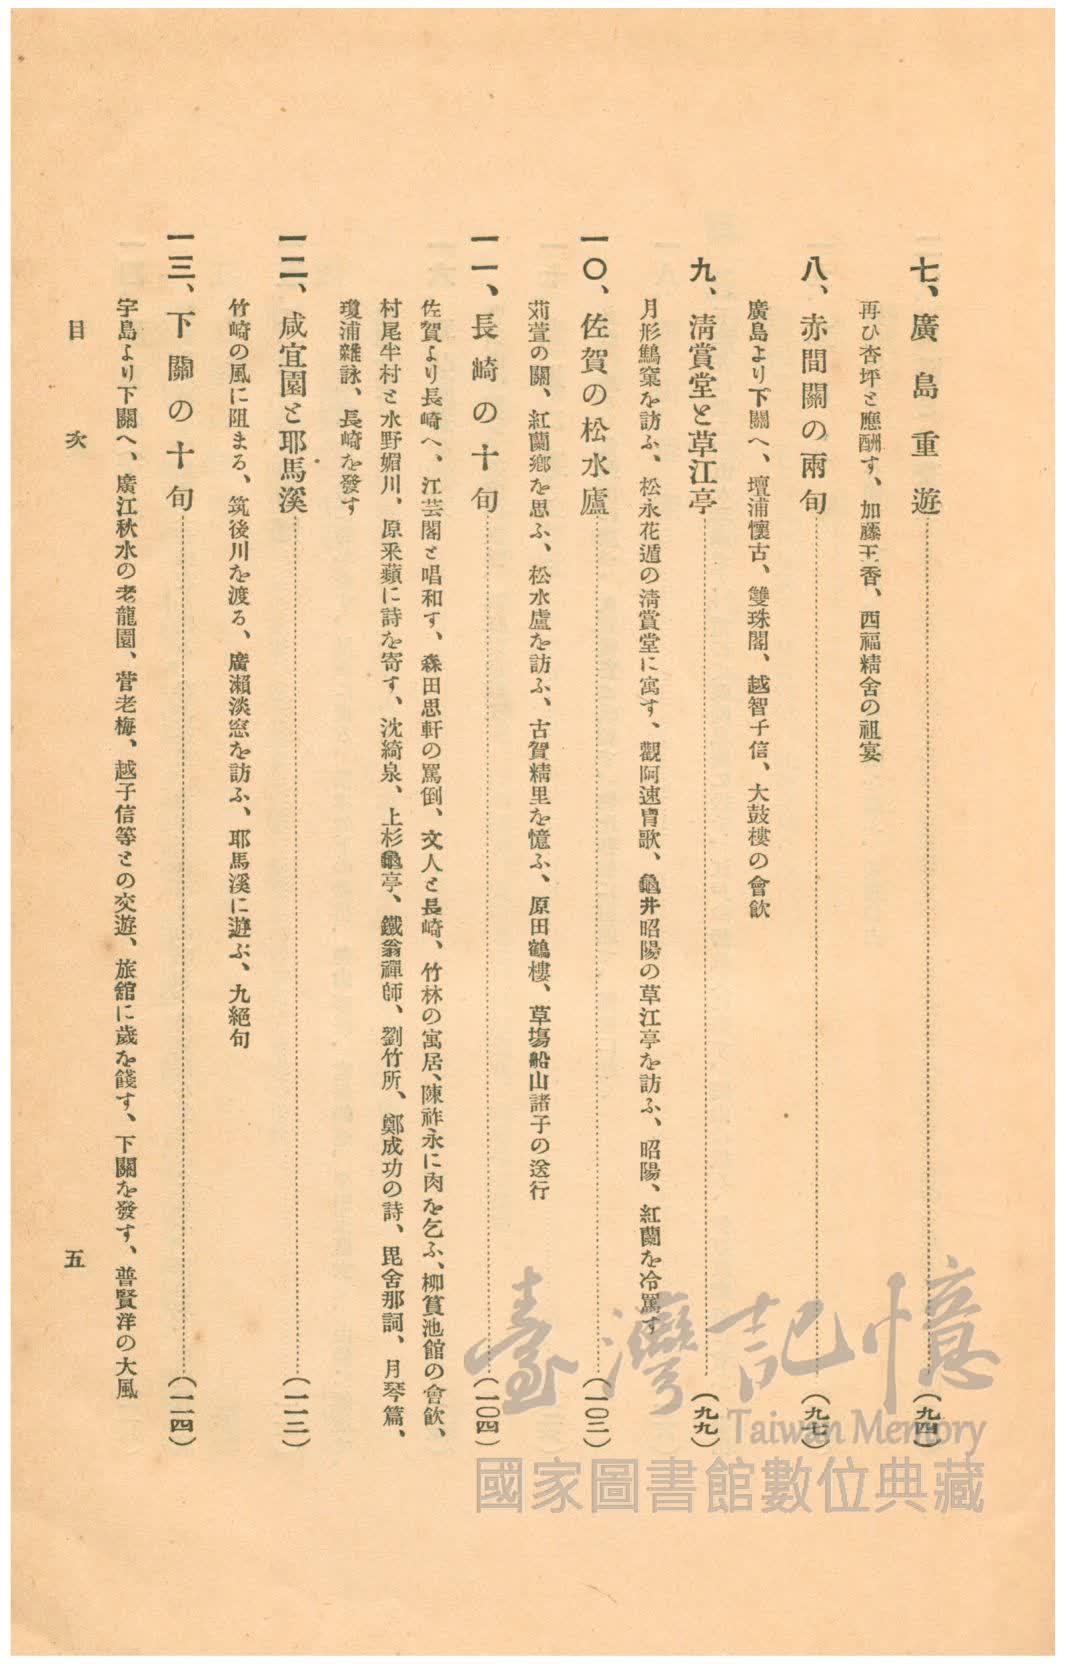 七、廣島重遊……(九四)
再び杏坪と應酬す、加藤王香、西福精舍の祖宴
八、赤間關の兩旬……(九七)
廣島より下關へ、壇浦懷古、雙珠閣、越智子信、大鼓樓の會飮
九、淸賞堂と草江亭……(九九)
月形鷦窠を訪ふ、松永花遁の淸賞堂に寓す、觀阿速冑歌、龜井昭陽の草江亭を訪ふ、昭陽、紅蘭を冷罵す
一〇、佐賀の松水廬……(一〇二)
苅萱の關、紅蘭鄕を思ふ、松水廬を訪ふ、古賀精里を憶ふ、原田鶴樓、草塲船山諸子の送行
一一、長崎の十旬……(一〇四)
佐賀より長崎へ、江芸閣と唱和す、森田思軒の罵倒、文人と長崎、竹林の寓居、陳祚永に肉を乞ふ、柳貧池館の會飮、
村尾半村と水野媚川、原釆蘋に詩を寄す、沈綺泉、上杉龜亭、鐵翁禪師、劉竹所、鄭成功の詩、毘舍那詞、月琴篇、
瓊浦雜詠、長崎を發す
一二、咸宜園と耶馬溪……(一一二)
竹崎の風に阻まる、筑後川を渡る、廣瀨淡窓を訪ふ、耶馬溪に遊ぶ、九絕句
一三、下關の十旬……(一一四)
宇島より下關へ、廣江秋水の老龍園、菅老梅、越子信等との交遊、旅舘に歲を餞す、下關を發す、普賢洋の大風
目次
五
臺灣記憶
Taiwan Memory
國家圖書館數位典藏